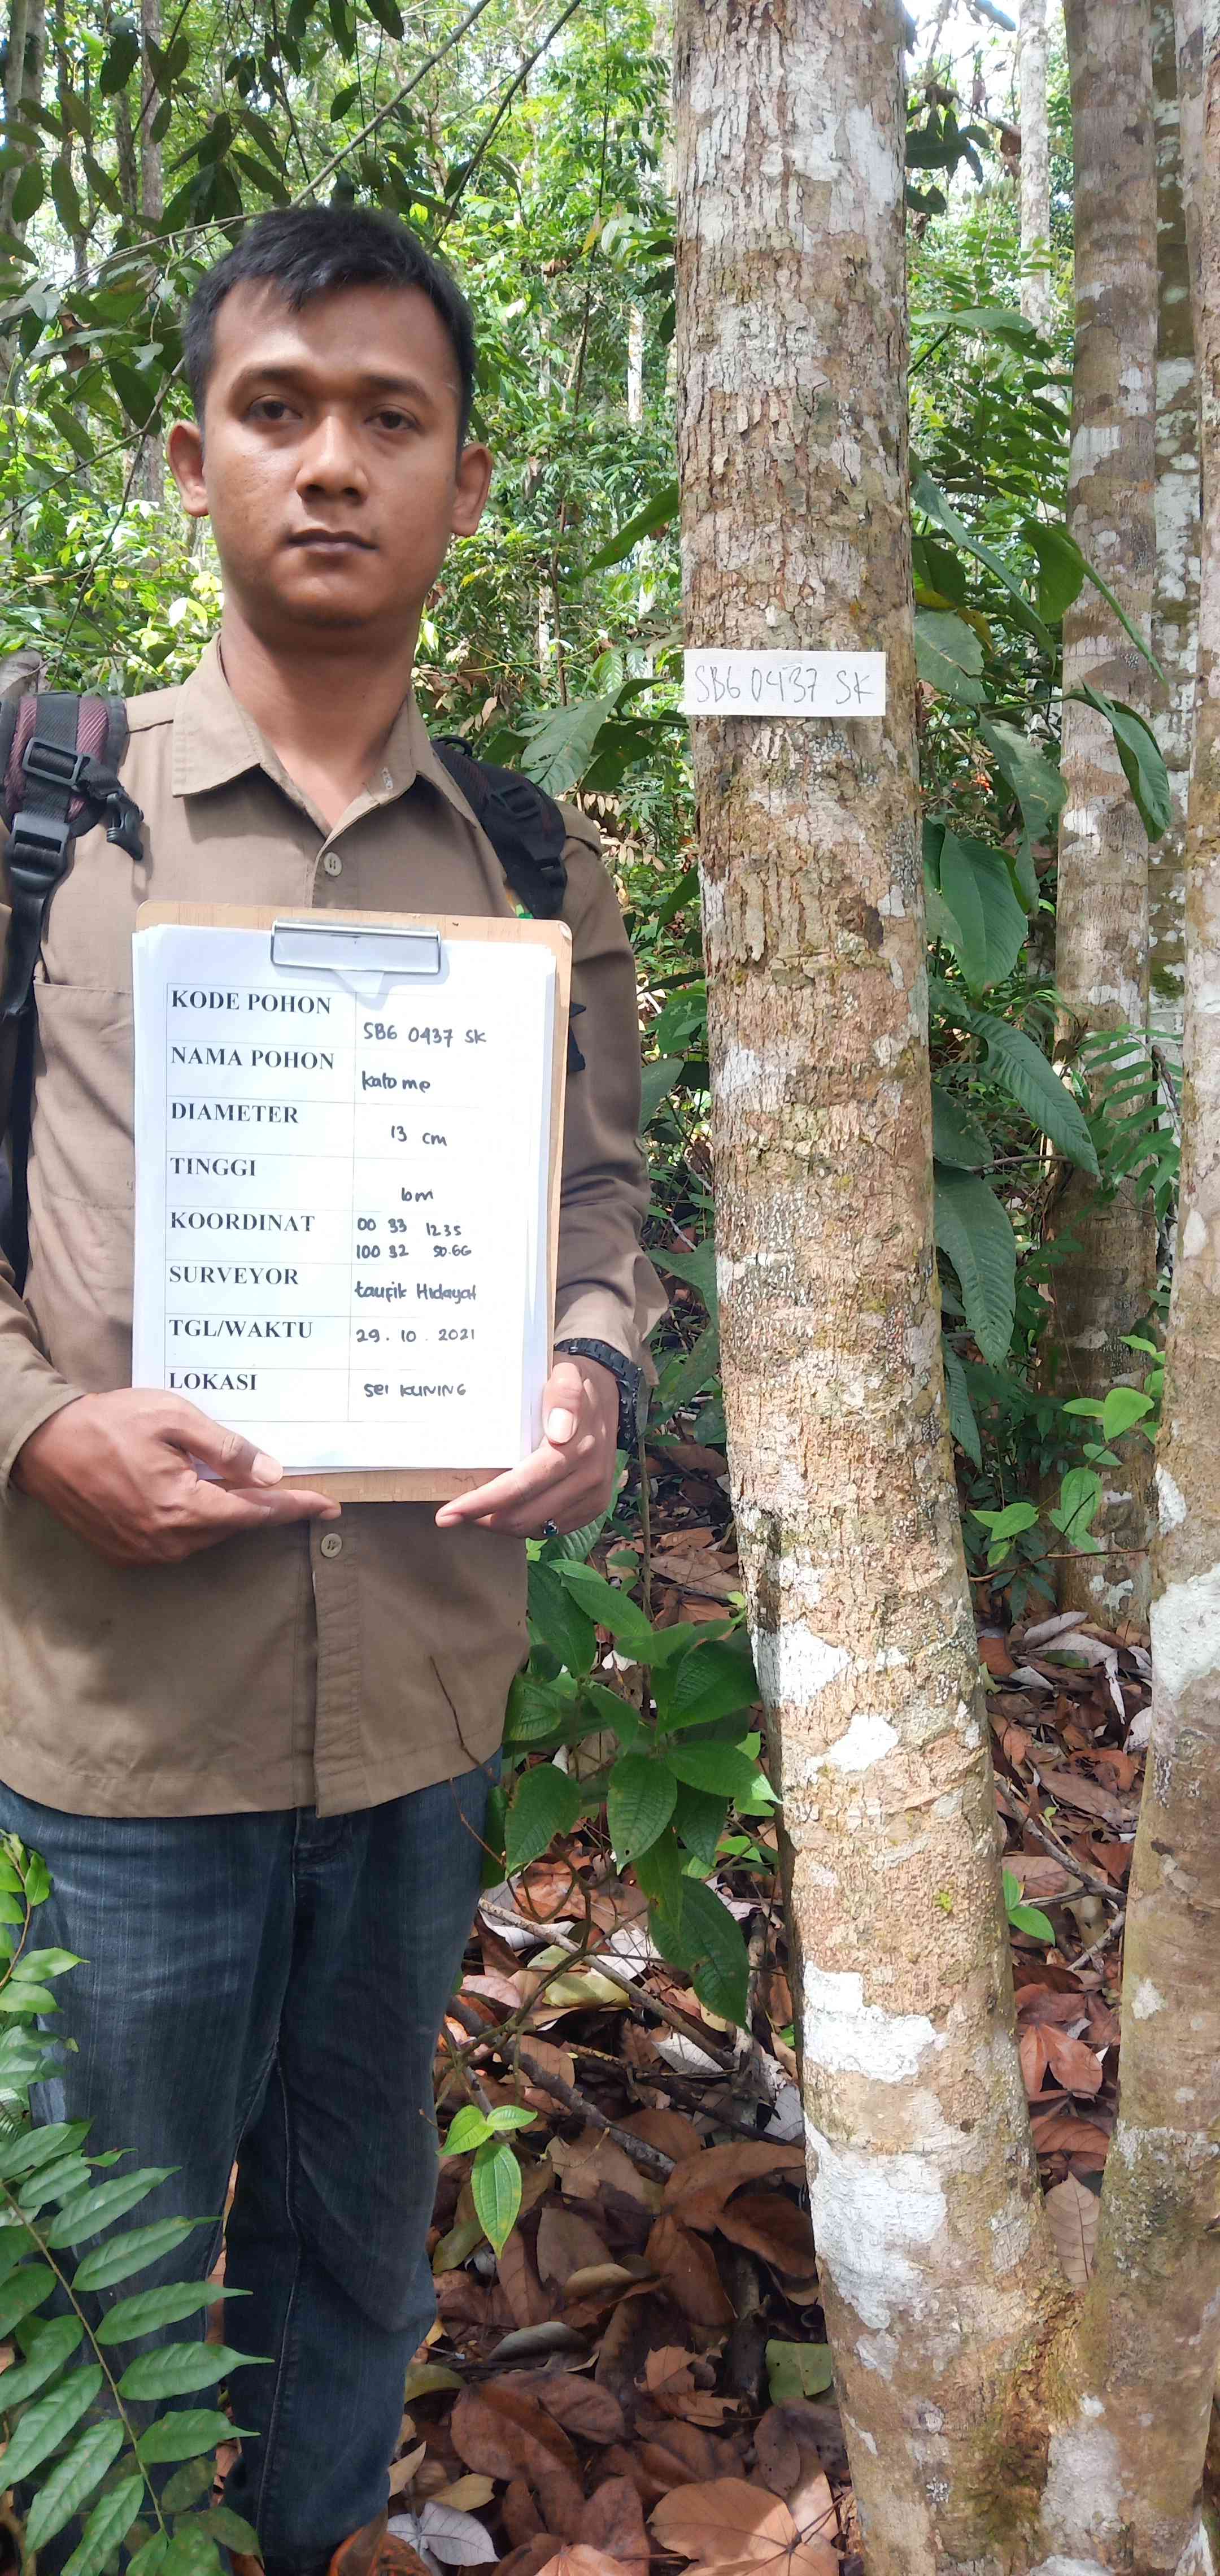 SB6 0437 SK
KODE POHON SB6 0437 SK
NAMA POHON Katome
DIAMETER 13 cm
TINGGI 6m
KOORDINAT 00 33 12.35
100 32 50.66
SURVEYOR taufik Hidayat
TGL/WAKTU 29.10.2021
LOKASI SEI KUNING